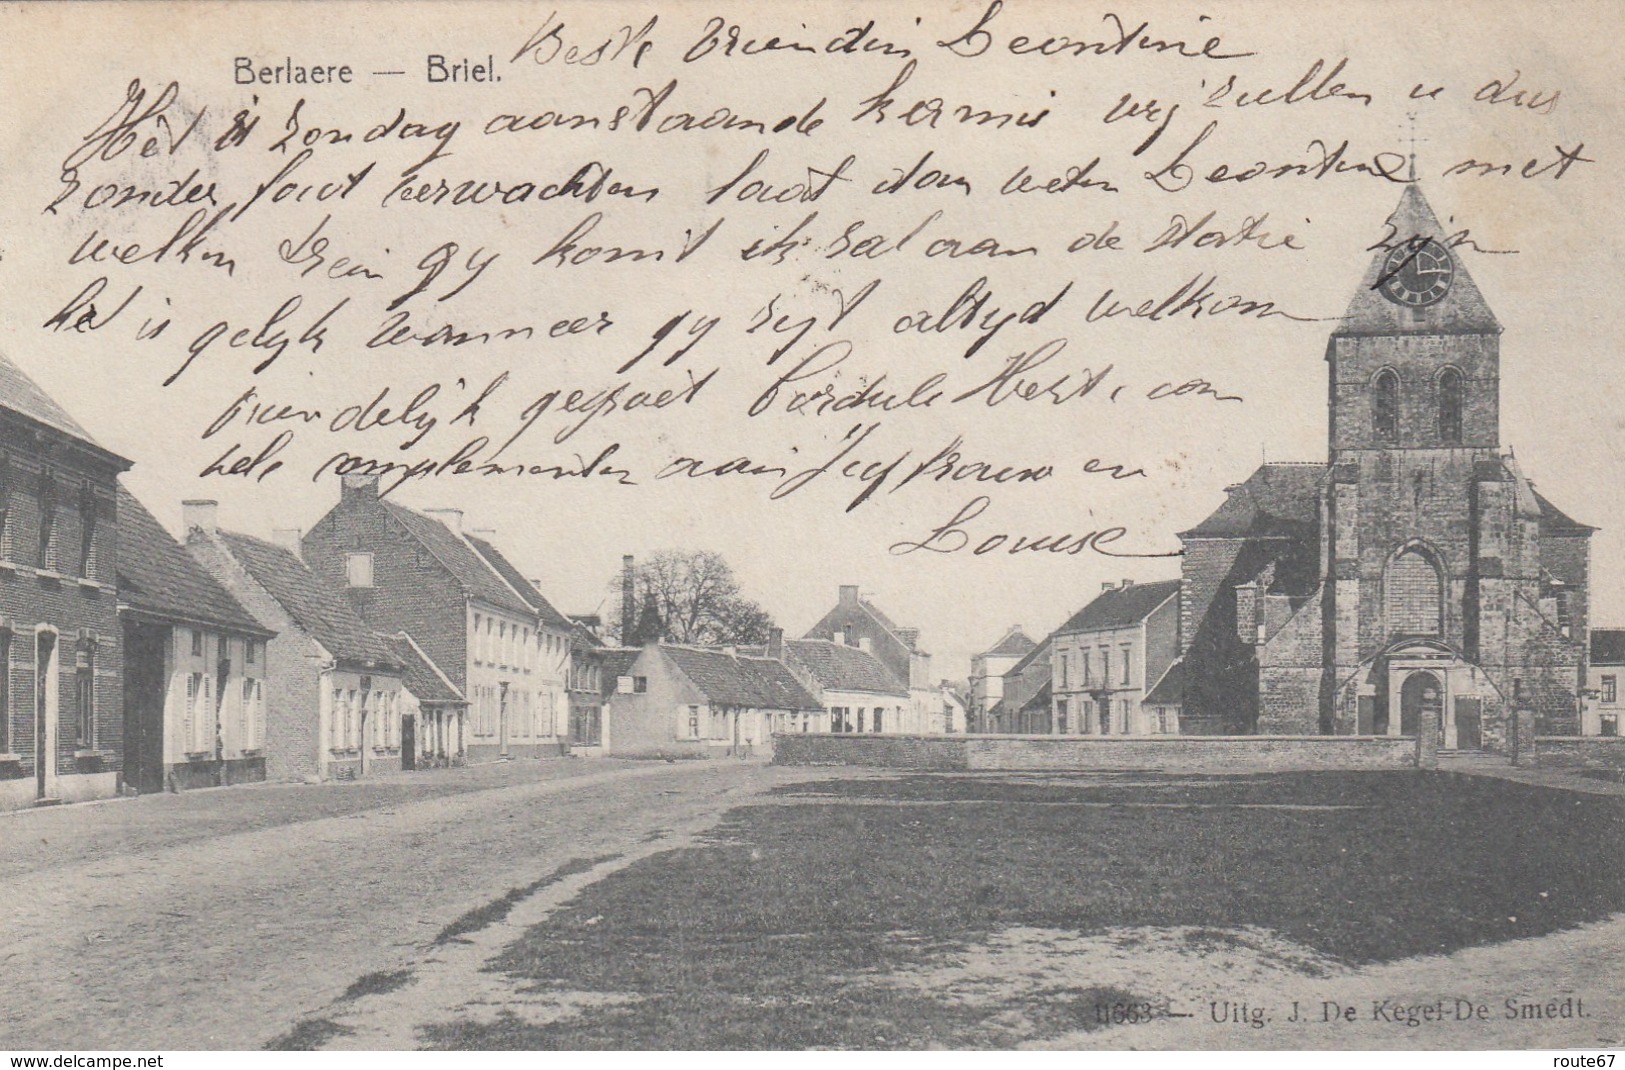 Berlaere — Briel.
Beste vriendin Leontine
Hèt is zondag aanstaande kermis wij zullen u dus
zonder fout verwachten laat dan weten Leontine met
welken trein gy komt ik zal aan de statie zijn
het is gelyk wanneer gy zyt altyd welkom
vriendelijk gegroet Cordule Hert, van
vele complementen aan Juffrouw en
Louise
11663 — Uitg. J. De Kegel-De Smedt.
www.delcampe.net
route67